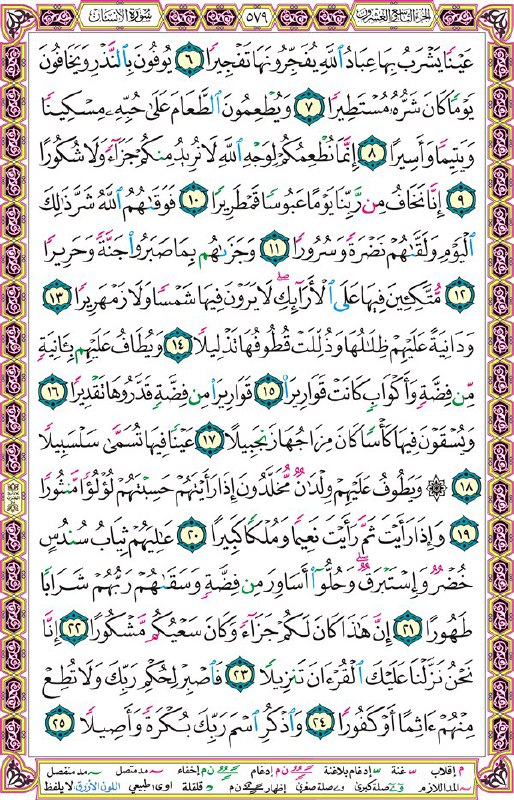 الجزء التاسع والعشرون ٥٧٩ سورة الإنسان
عَيْنًا يَشْرَبُ بِهَا عِبَادُ ٱللَّهِ يُفَجِّرُونَهَا تَفْجِيرًا ٦ يُوفُونَ بِٱلنَّذْرِ وَيَخَافُونَ
يَوْمًا كَانَ شَرُّهُۥ مُسْتَطِيرًا ٧ وَيُطْعِمُونَ ٱلطَّعَامَ عَلَىٰ حُبِّهِۦ مِسْكِينًا
وَيَتِيمًا وَأَسِيرًا ٨ إِنَّمَا نُطْعِمُكُمْ لِوَجْهِ ٱللَّهِ لَا نُرِيدُ مِنكُمْ جَزَآءً وَلَا شُكُورًا
٩ إِنَّا نَخَافُ مِن رَّبِّنَا يَوْمًا عَبُوسًا قَمْطَرِيرًا ١٠ فَوَقَىٰهُمُ ٱللَّهُ شَرَّ ذَٰلِكَ
ٱلْيَوْمِ وَلَقَّىٰهُمْ نَضْرَةً وَسُرُورًا ١١ وَجَزَىٰهُم بِمَا صَبَرُوا۟ جَنَّةً وَحَرِيرًا
١٢ مُّتَّكِـِٔينَ فِيهَا عَلَى ٱلْأَرَآئِكِ ۖ لَا يَرَوْنَ فِيهَا شَمْسًا وَلَا زَمْهَرِيرًا ١٣
وَدَانِيَةً عَلَيْهِمْ ظِلَٰلُهَا وَذُلِّلَتْ قُطُوفُهَا تَذْلِيلًا ١٤ وَيُطَافُ عَلَيْهِم بِـَٔانِيَةٍ
مِّن فِضَّةٍ وَأَكْوَابٍ كَانَتْ قَوَارِيرَا۠ ١٥ قَوَارِيرَا۟ مِن فِضَّةٍ قَدَّرُوهَا تَقْدِيرًا ١٦
وَيُسْقَوْنَ فِيهَا كَأْسًا كَانَ مِزَاجُهَا زَنجَبِيلًا ١٧ عَيْنًا فِيهَا تُسَمَّىٰ سَلْسَبِيلًا
١٨ ۞ وَيَطُوفُ عَلَيْهِمْ وِلْدَٰنٌ مُّخَلَّدُونَ إِذَا رَأَيْتَهُمْ حَسِبْتَهُمْ لُؤْلُؤًا مَّنثُورًا
١٩ وَإِذَا رَأَيْتَ ثَمَّ رَأَيْتَ نَعِيمًا وَمُلْكًا كَبِيرًا ٢٠ عَٰلِيَهُمْ ثِيَابُ سُندُسٍ
خُضْرٌ وَإِسْتَبْرَقٌ ۖ وَحُلُّوٓا۟ أَسَاوِرَ مِن فِضَّةٍ وَسَقَىٰهُمْ رَبُّهُمْ شَرَابًا
طَهُورًا ٢١ إِنَّ هَٰذَا كَانَ لَكُمْ جَزَآءً وَكَانَ سَعْيُكُم مَّشْكُورًا ٢٢ إِنَّا
نَحْنُ نَزَّلْنَا عَلَيْكَ ٱلْقُرْءَانَ تَنزِيلًا ٢٣ فَٱصْبِرْ لِحُكْمِ رَبِّكَ وَلَا تُطِعْ
مِنْهُمْ ءَاثِمًا أَوْ كَفُورًا ٢٤ وَٱذْكُرِ ٱسْمَ رَبِّكَ بُكْرَةً وَأَصِيلًا ٢٥
م إقلاب غنة إدغام بلاغنة ن م إدغام ن م إخفاء مد متصل مد منفصل
المد اللازم صلة كبرى صلة صغرى إظهار قلقلة اوى: طبيعي اللون الأزرق: لا يلفظ